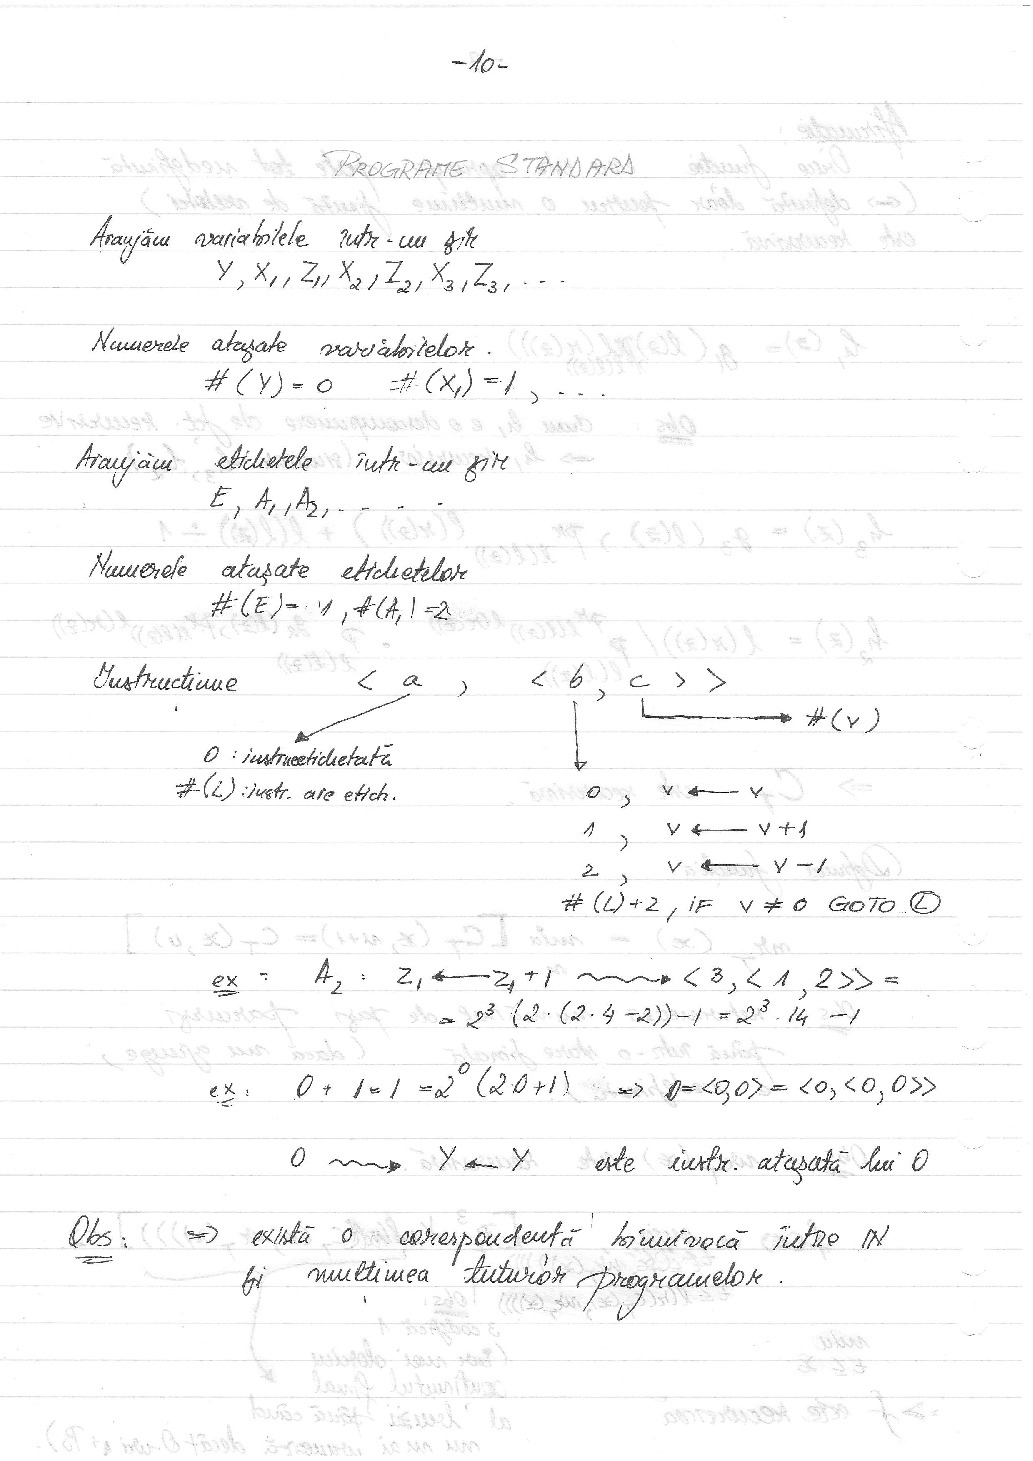 -10-
PROGRAME STANDARD
Aranjăm variabilele într-un șir
Y, X1, Z1, X2, Z2, X3, Z3, ...
Numerele atașate variabilelor.
#(Y)=0 #(X1)=1, ...
Aranjăm etichetele într-un șir
E, A1, A2, . . . .
Numerele atașate etichetelor
#(E)=1, #(A1)=2
Instrucțiune < a , < b, c > >
#(v)
0 : instr.
#(L): instr. are etich.
0, v ← v
1, v ← v+1
2, v ← v-1
#(L)+2, IF v ≠ 0 GOTO L
ex : A2 : Z1 ← Z1+1 ⇝ <3, <1, 2>> =
= 2^3 (2·(2·4-2))-1 = 2^3·14 -1
ex: 0+1=1=2^0 (2·0+1) => 0=<0,0>=<0,<0,0>>
0 ⇝ Y ← Y este instr. atașată lui 0
Obs: => există o corespondență biunivocă între IN
și mulțimea tuturor programelor.